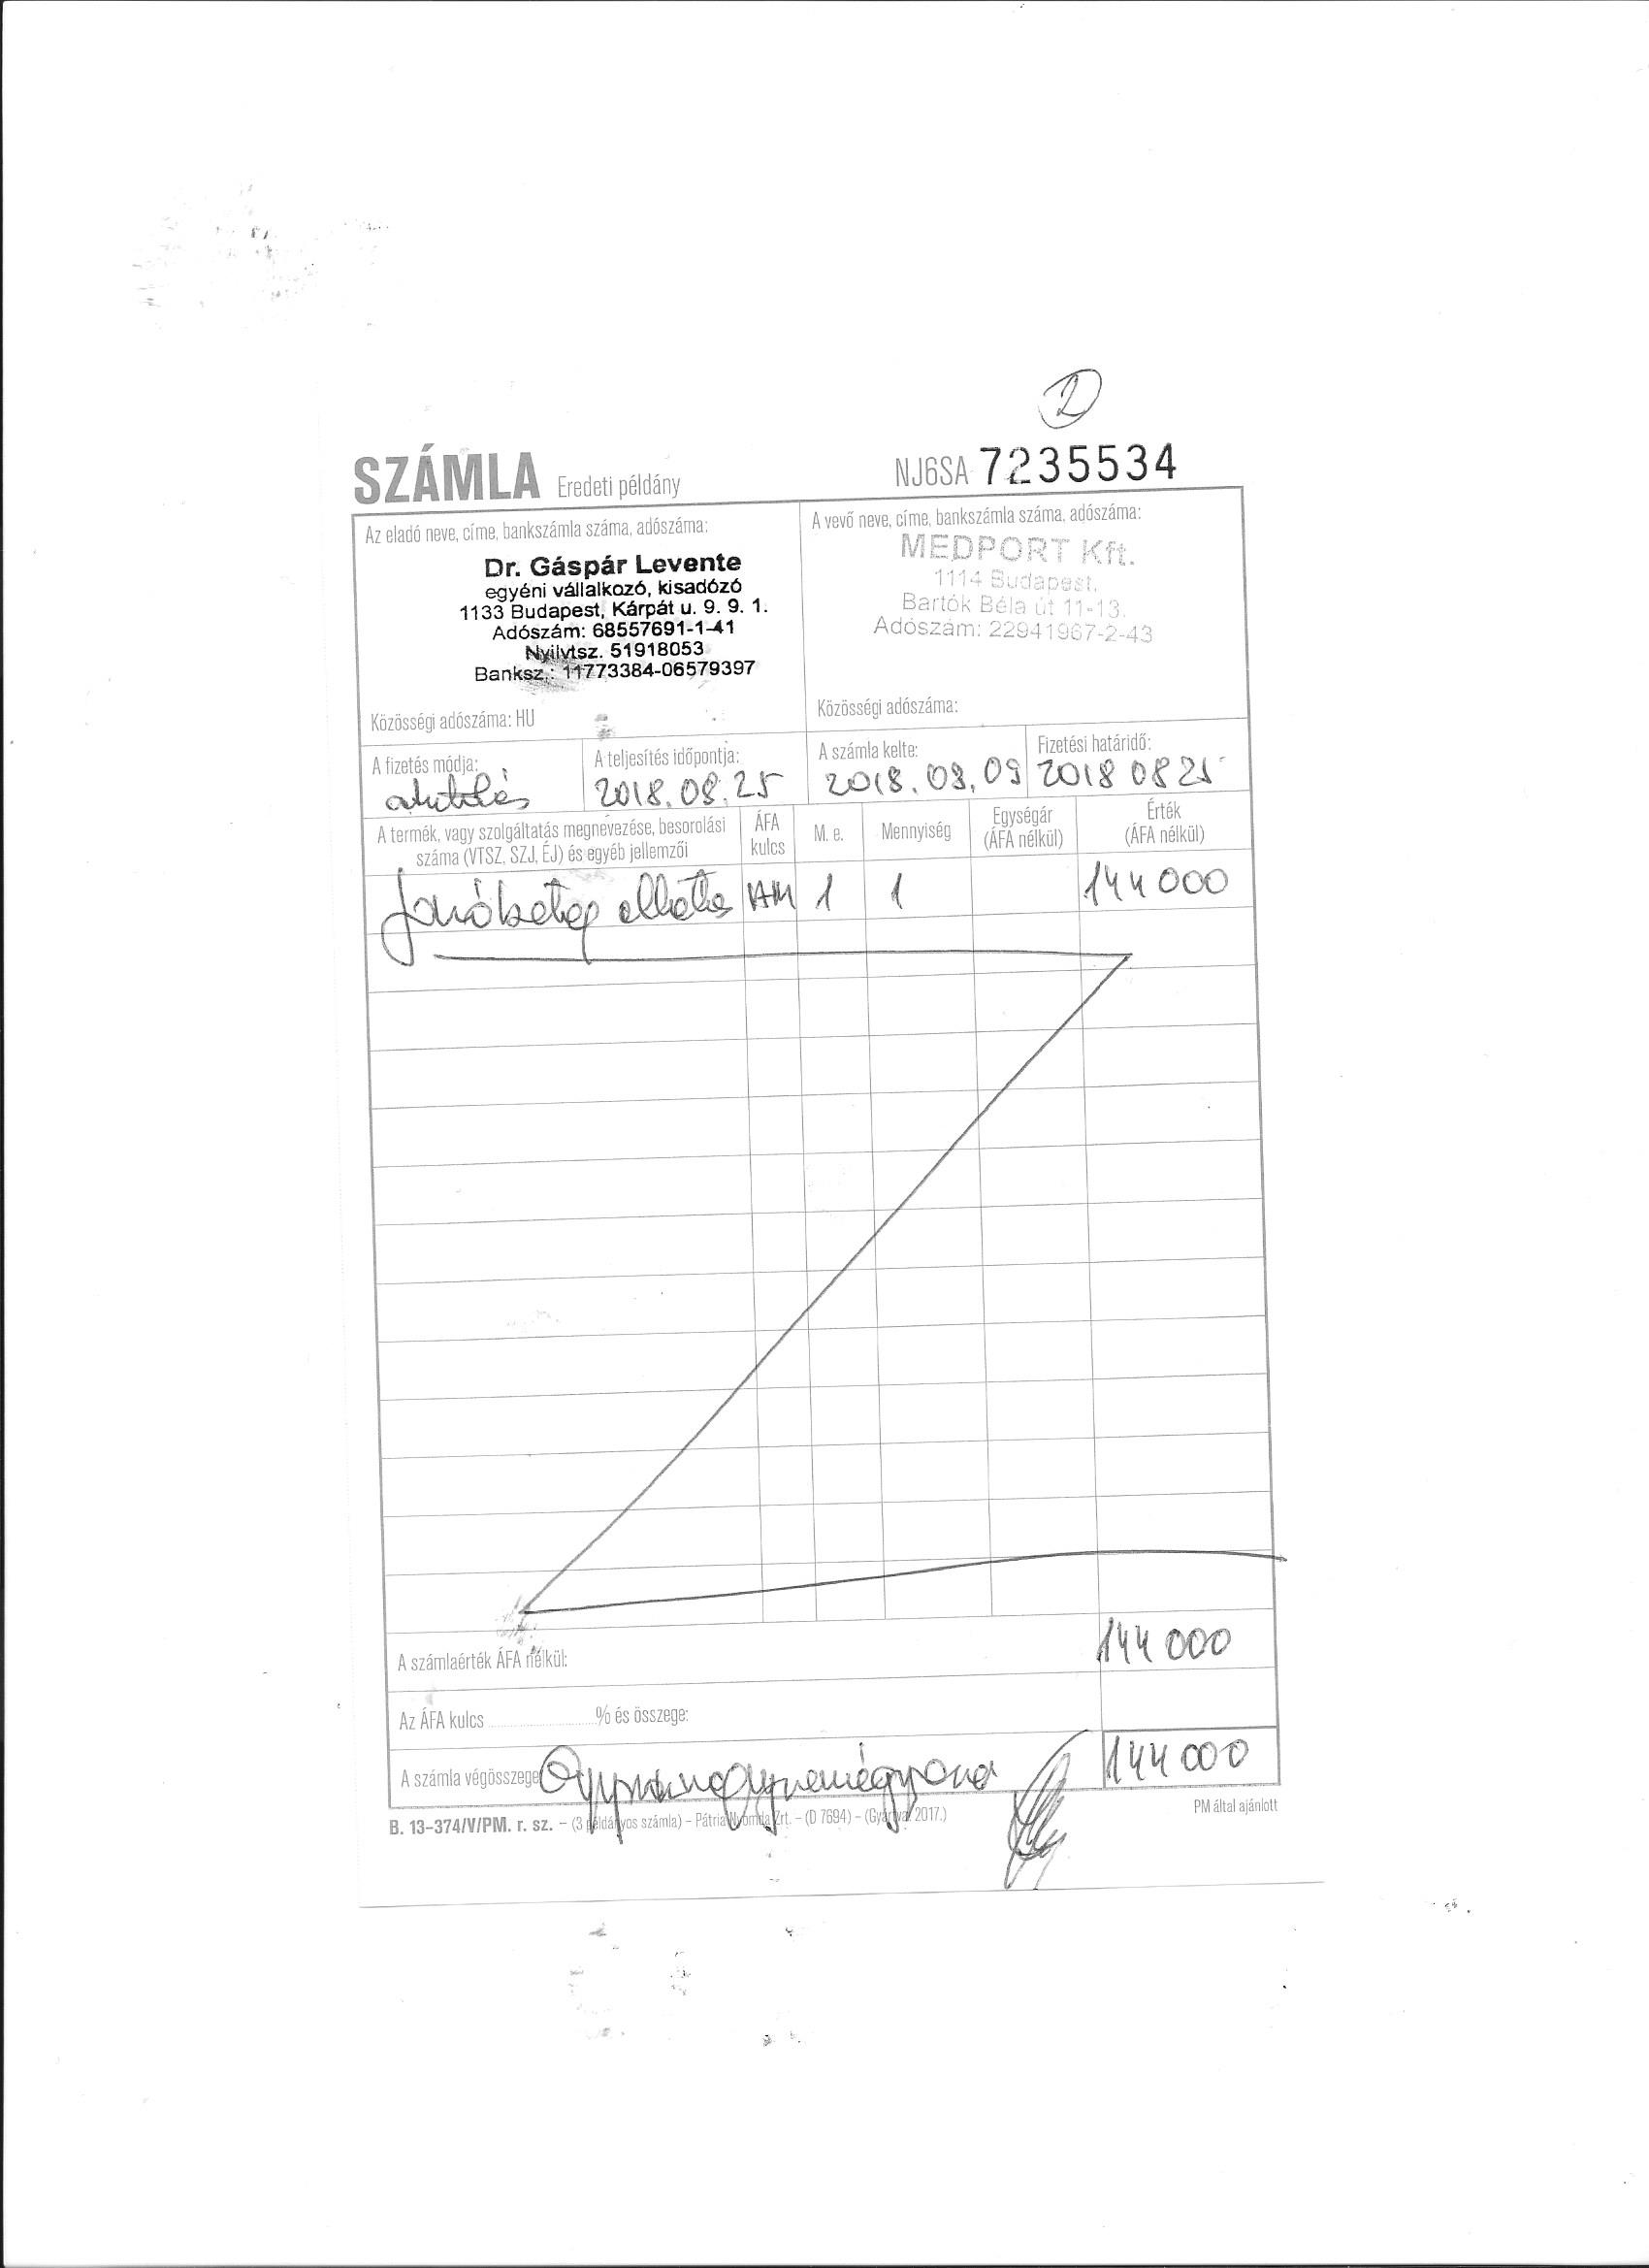 2
SZÁMLA Eredeti példány
NJ6SA 7235534
Az eladó neve, címe, bankszámla száma, adószáma:
Dr. Gáspár Levente
egyéni vállalkozó, kisadózó
1133 Budapest, Kárpát u. 9. 9. 1.
Adószám: 68557691-1-41
Nyilvtsz. 51918053
Banksz.: 11773384-06579397
Közösségi adószáma: HU
A vevő neve, címe, bankszámla száma, adószáma:
MEDPORT Kft.
1114 Budapest,
Bartók Béla út 11-13.
Adószám: 22941967-2-43
Közösségi adószáma:
A fizetés módja:
átutalás
A teljesítés időpontja:
2018.08.25
A számla kelte:
2018.08.09
Fizetési határidő:
2018 08 25
A termék, vagy szolgáltatás megnevezése, besorolási
száma (VTSZ, SZJ, ÉJ) és egyéb jellemzői
ÁFA
kulcs
M. e.
Mennyiség
Egységár
(ÁFA nélkül)
Érték
(ÁFA nélkül)
Járóbeteg ellátás AM 1 1 144 000
A számlaérték ÁFA nélkül: 144 000
Az ÁFA kulcs ........................% és összege:
A számla végösszege 144 000
B. 13-374/V/PM. r. sz. – (3 példányos számla) – Pátria Nyomda Zrt. – (D 7694) – (Gyártva: 2017.)
PM által ajánlott